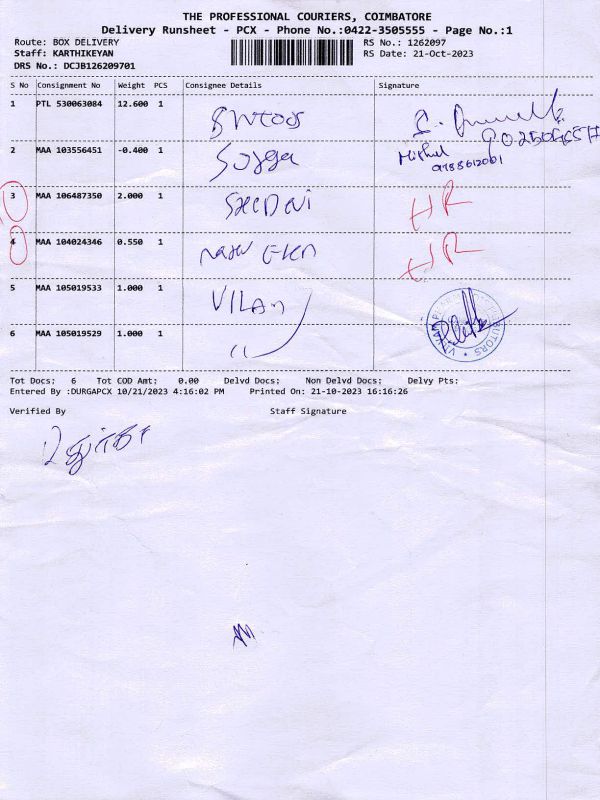 THE PROFESSIONAL COURIERS, COIMBATORE
Delivery Runsheet - PCX - Phone No.:0422-3505555 - Page No.:1
Route: BOX DELIVERY RS No.: 1262097
Staff: KARTHIKEYAN RS Date: 21-Oct-2023
DRS No.: DCJB126209701
S No Consignment No Weight PCS Consignee Details Signature
1 PTL 530063084 12.600 1
2 MAA 103556451 -0.400 1
3 MAA 106487350 2.000 1 HR
4 MAA 104024346 0.550 1 HR
5 MAA 105019533 1.000 1 VILAN
6 MAA 105019529 1.000 1 "
Tot Docs: 6 Tot COD Amt: 0.00 Delvd Docs: Non Delvd Docs: Delvy Pts:
Entered By :DURGAPCX 10/21/2023 4:16:02 PM Printed On: 21-10-2023 16:16:26
Verified By Staff Signature